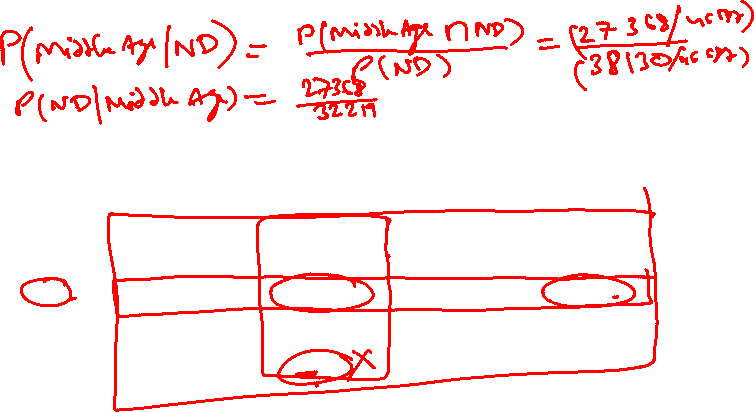 P(Middle Age|ND) = P(Middle Age ∩ ND) / P(ND) = (27368/) / (38130/)
P(ND|Middle Age) = 27368 / 32219
X